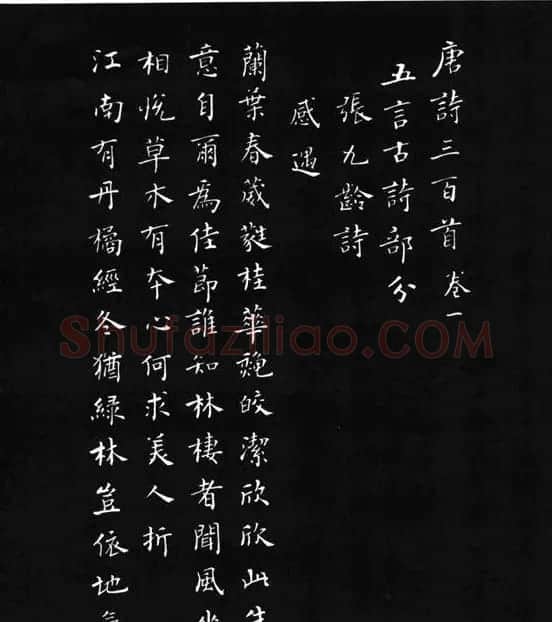 唐詩三百首 卷一
五言古詩部分
張九齡詩
感遇
蘭葉春葳蕤桂華皎潔欣欣此生
意自爾為佳節誰知林棲者聞風坐
相悅草木有本心何求美人折
江南有丹橘經冬猶綠林豈依地
Shufaziliao.COM